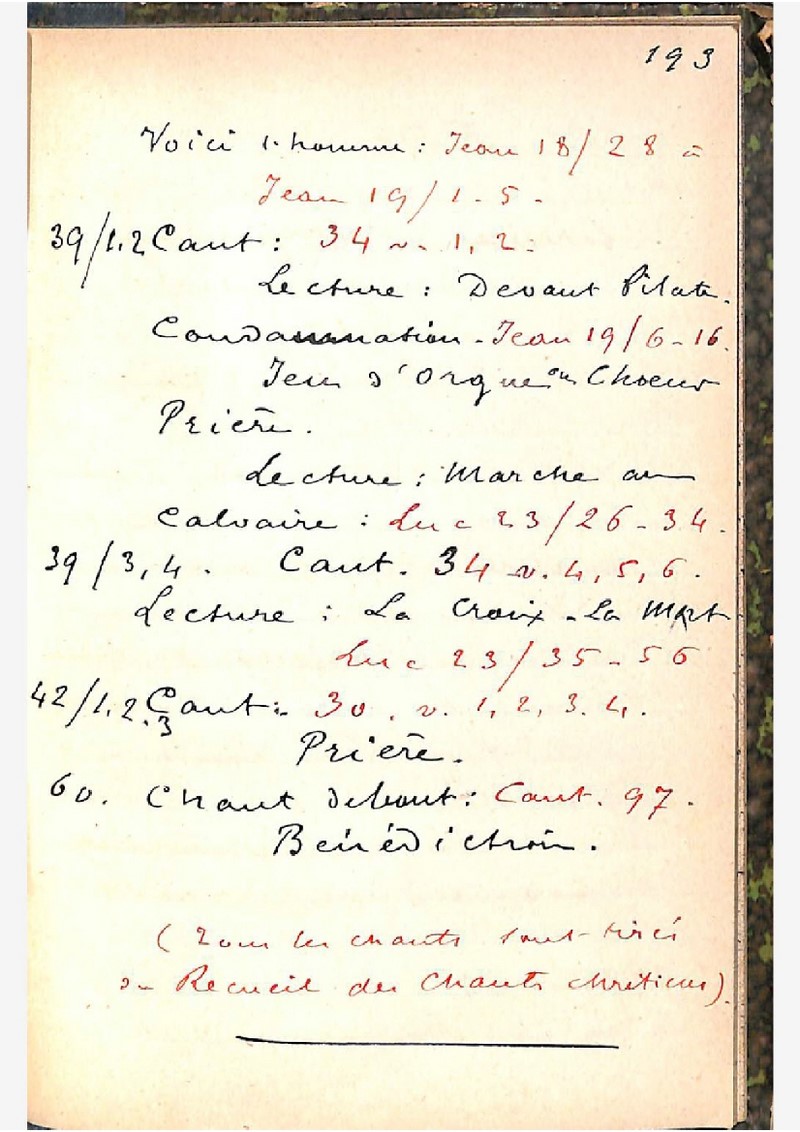 193
Voici l'homme : Jean 18/28 à
Jean 19/1-5.
39/1.2 Cant : 34 v. 1, 2.
Lecture : Devant Pilate.
Condamnation - Jean 19/6-16.
Jeu d'Orgue ou Choeur
Prière.
Lecture : Marche au
Calvaire : Luc 23/26-34.
39/3, 4. Cant. 34 v. 4, 5, 6.
Lecture : La Croix - La Mort
Luc 23/35-56
42/1.2.3 Cant : 30. v. 1, 2, 3. 4.
Prière.
60. Chant debout : Cant. 97.
Bénédiction.
(Tous les chants sont tirés
du Recueil des Chants chrétiens).